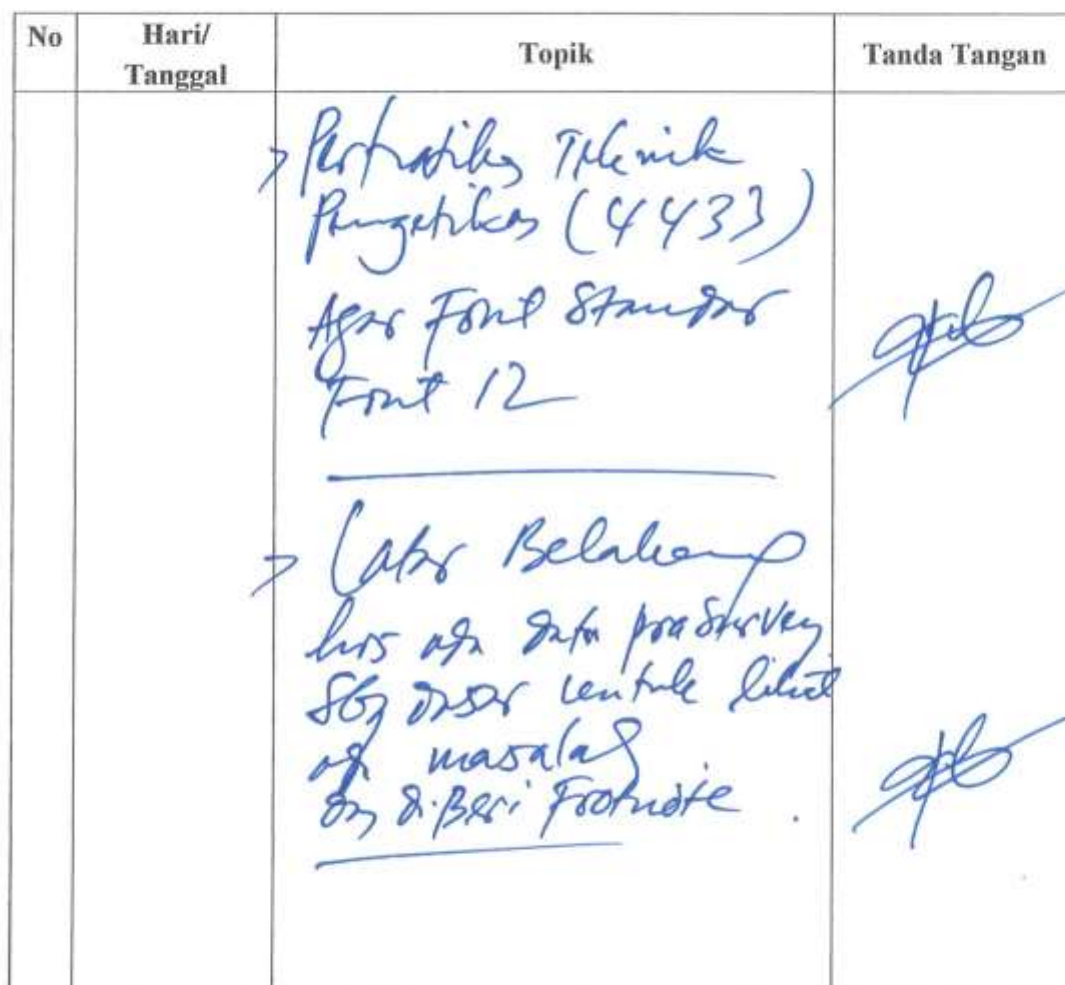 No
Hari/
Tanggal
Topik
Tanda Tangan
> Perhatikan Teknik
Pengetikan (4433)
Agar Font Standar
Font 12
> Latar Belakang
hrs ada data pra Survey
sbg dasar untuk lihat
ada masalah
dan diBeri Footnote.